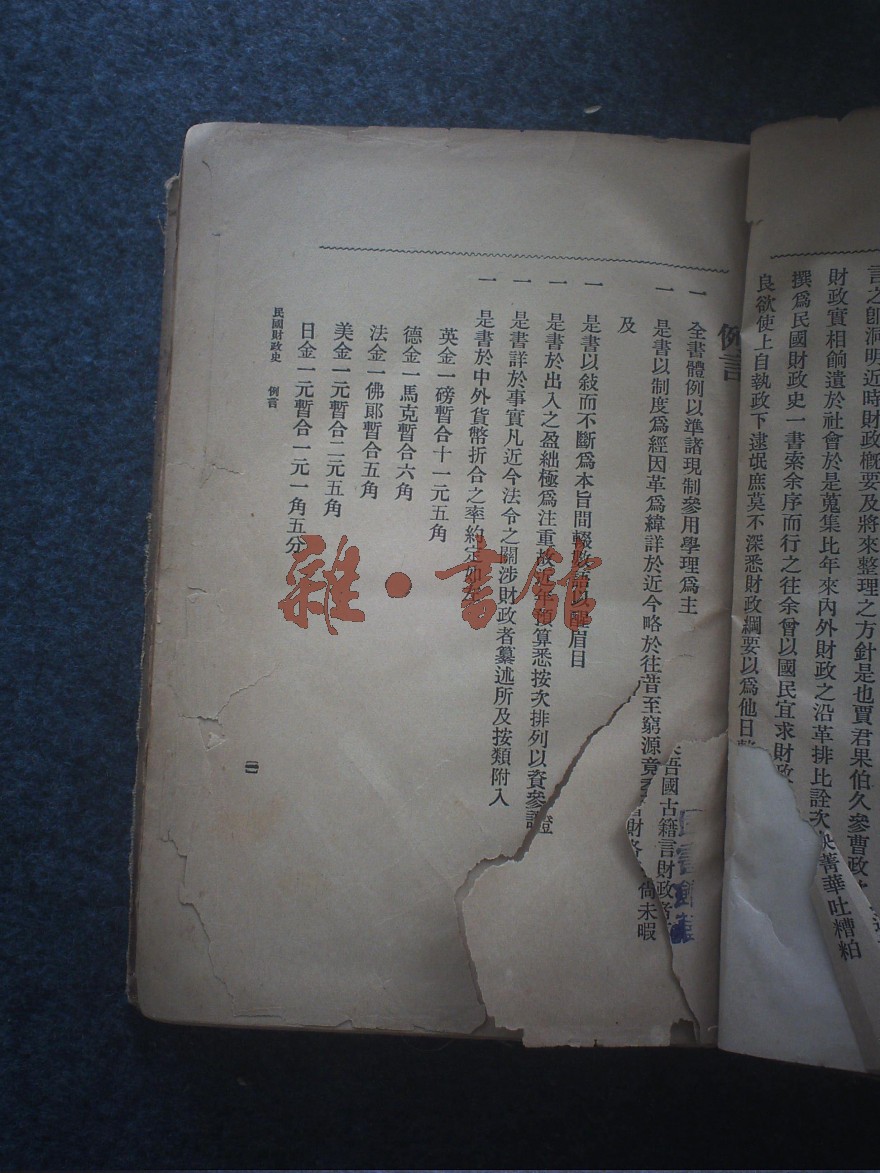 言之卽洞明近時財政槪要及將來整理之方針是也賈君果伯久參曹政
財政實相餉遺於社會於是蒐集比年來內外財政之沿革排比詮次 菁華吐糟粕
撰爲民國財政史一書索余序而行之往余曾以國民宜求財政
良欲使上自執政下逮氓庶莫不深悉財政綱要以爲他日
例言
一 全書體例以準諸現制參用學理爲主
一 是書以制度爲經因革爲緯詳於近今略於往昔至窮源竟 吾國古籍言財政者
及 財 尙未暇
一 是書以敍而不斷爲本旨間輟 語以醒眉目
一 是書於出入之盈絀極爲注重故近年預算悉按次排列以資參證
一 是書詳於事實凡近今法令之關涉財政者纂述所及按類附入
一 是書於中外貨幣折合之率約定如左
英金一磅暫合十一元五角
德金一馬克暫合六角
法金一佛郞暫合五角
美金一元暫合二元五角
日金一元暫合一元一角五分
民國財政史 例言
二
雜·書館